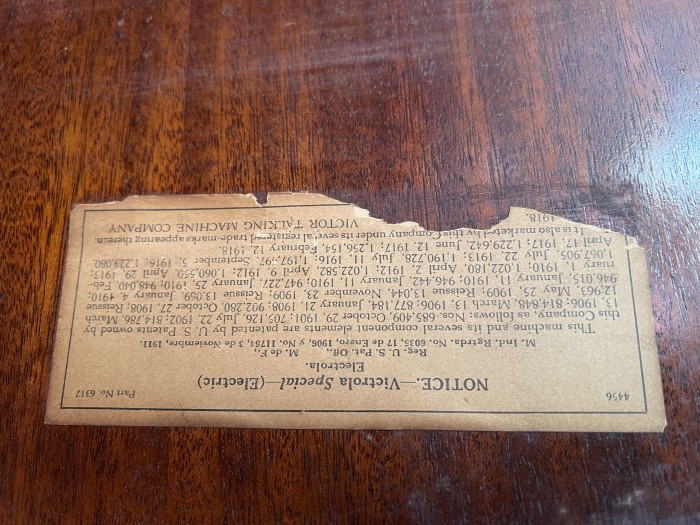 4456
NOTICE.—Victrola Special—(Electric)
Part No. 6317
Electrola.
Reg. U. S. Pat. Off., M. de F.,
M. Ind. Rgtrda. No. 6035, 17 de Enero, 1906, y No. 11781, 3 de Noviembre, 1911.
This machine and its several component elements are patented by U. S. Patents owned by
this company, as follows: Nos. 685,409, October 29, 1901; 705,126, July 22, 1902; 814,786, March
13, 1906; 814,848, March 13, 1906; 877,184, January 21, 1908; 902,280, October 27, 1908; Reissue
12,963, May 25, 1909; Reissue 13,044, November 23, 1909; Reissue 13,059, January 4, 1910;
946,015, January 11, 1910; 946,442, January 11, 1910; 947,227, January 25, 1910; 948,040, Feb-
ruary 1, 1910; 1,022,180, April 2, 1912; 1,022,582, April 9, 1912; 1,060,550, April 29, 1913;
1,067,905, July 22, 1913; 1,190,728, July 11, 1916; 1,197,797, September 5, 1916; 1,223,060,
April 17, 1917; 1,229,642, June 12, 1917; 1,256,154, February 12, 1918.
It is also marketed by this Company under its several registered trade-marks appearing thereon
1918. VICTOR TALKING MACHINE COMPANY